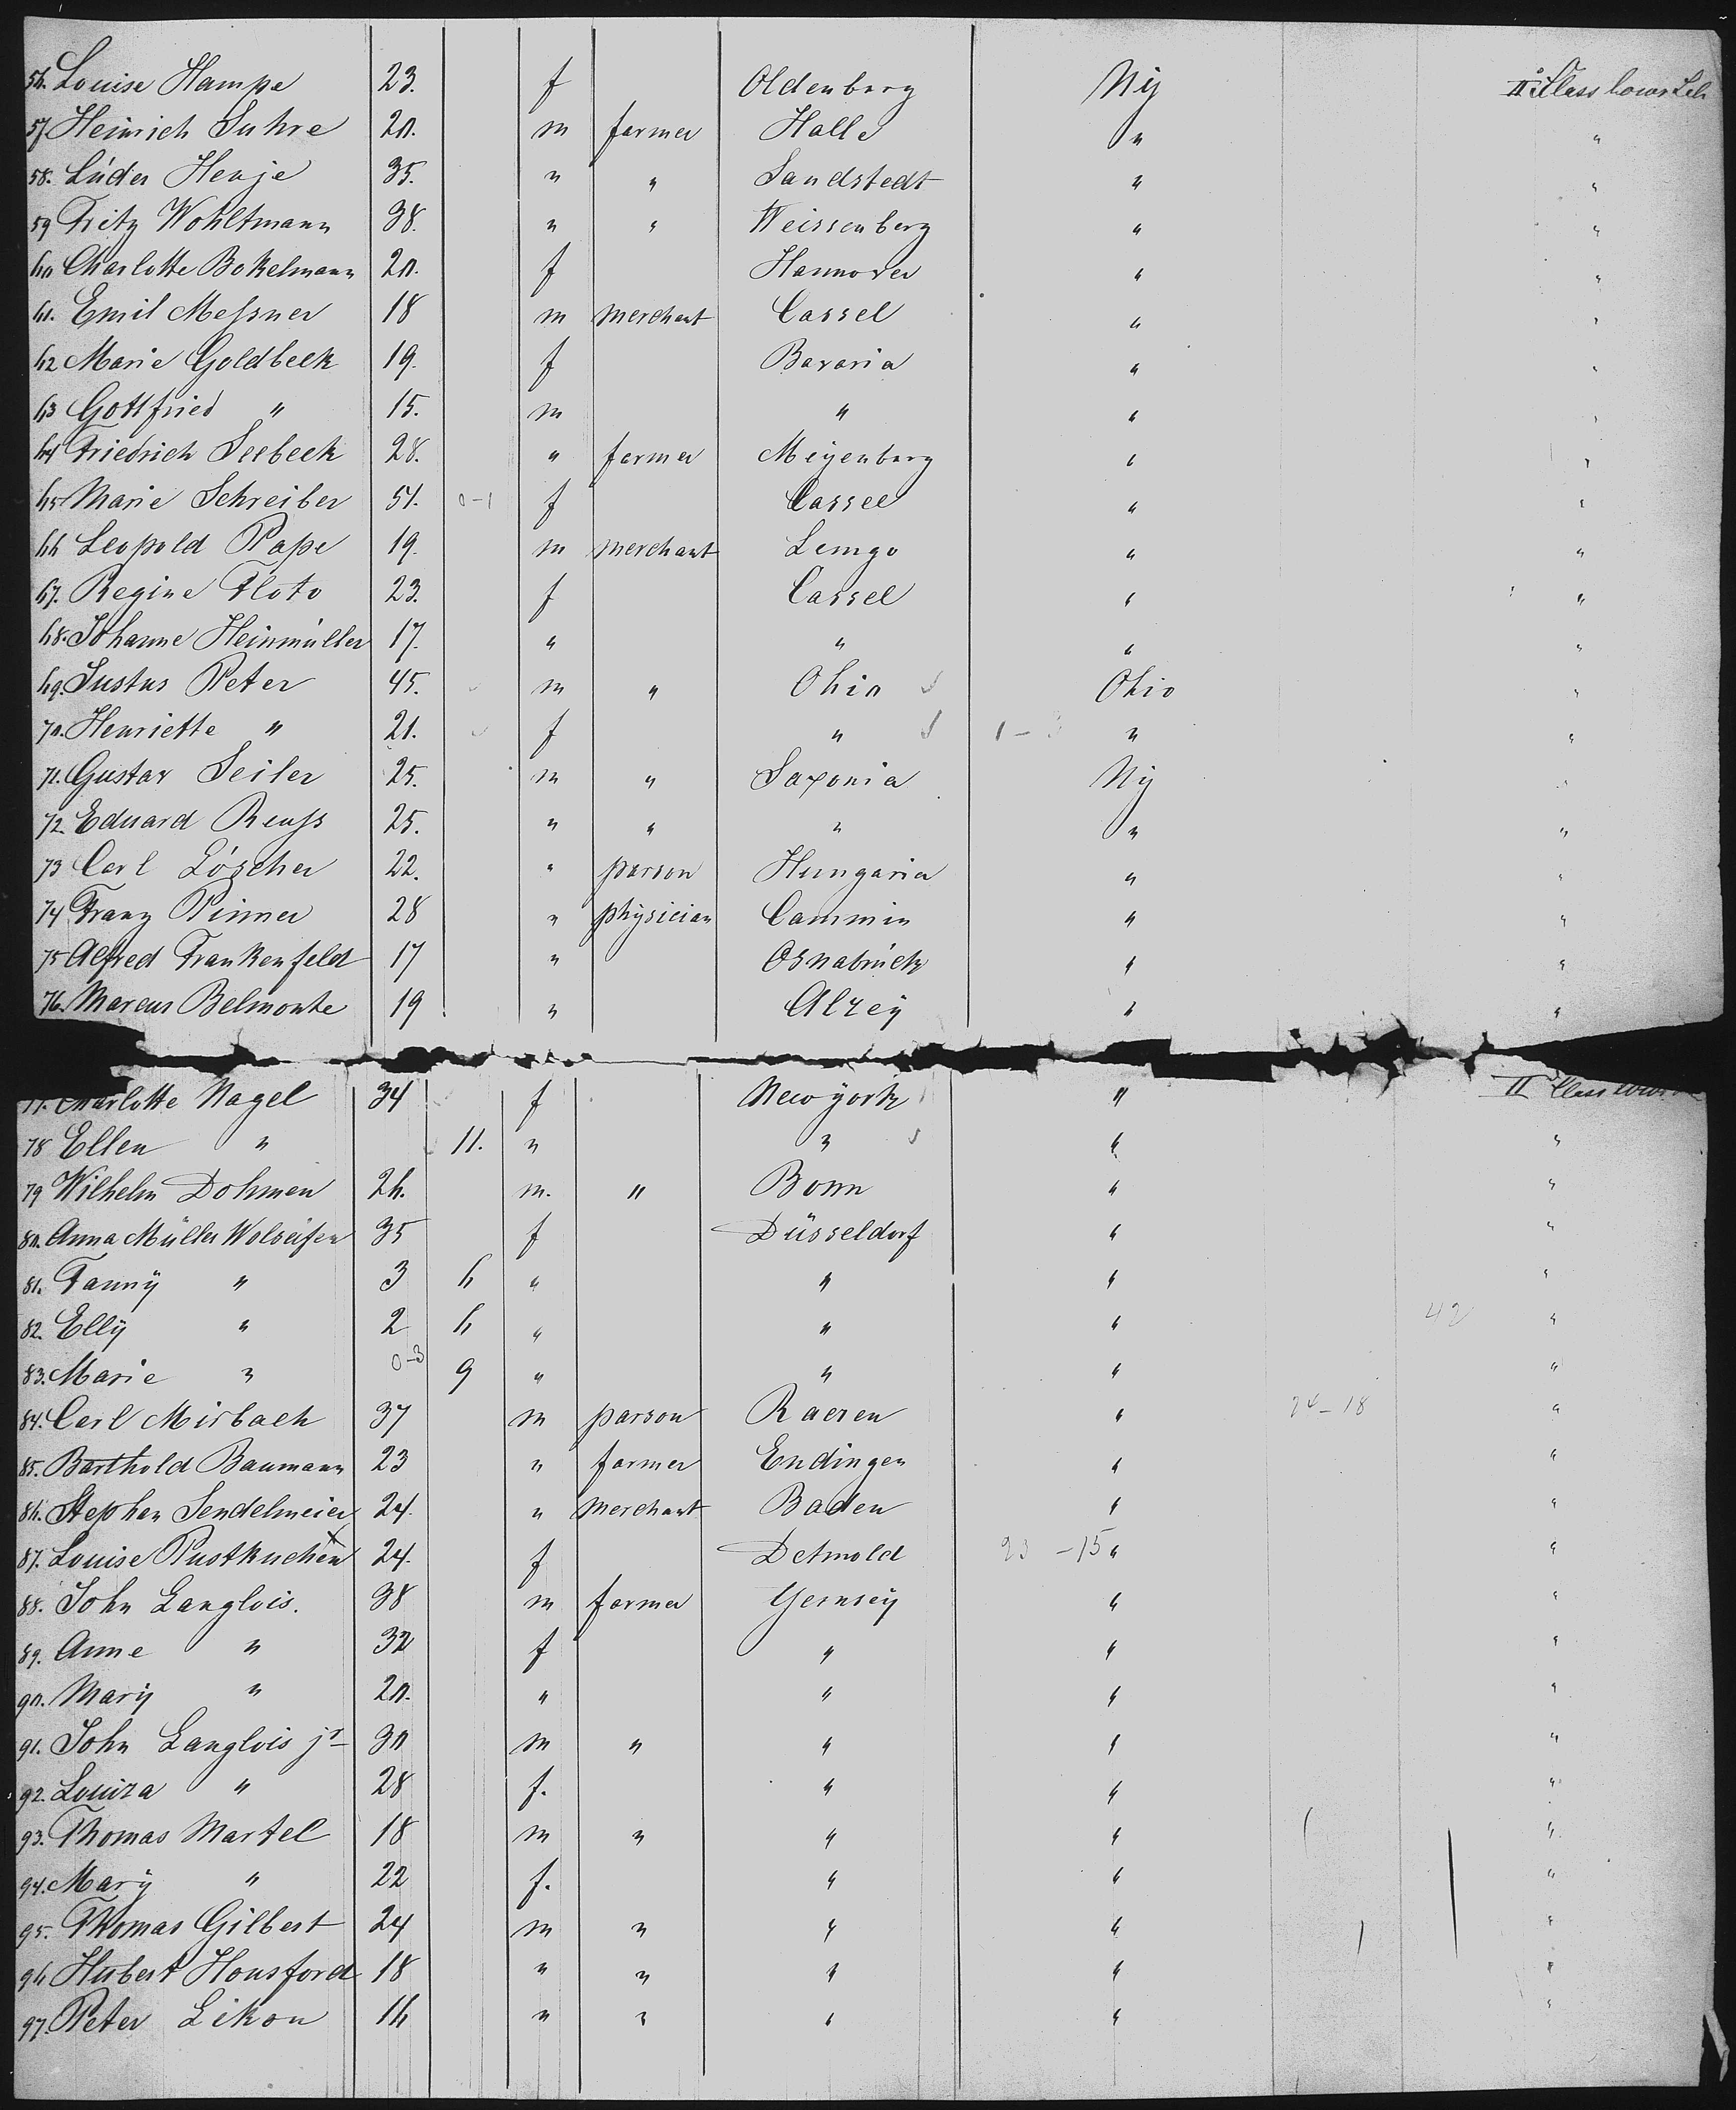 56. Louise Hampe 23. f Oldenburg NY II Class lower
57. Heinrich Suhre 20. m farmer Halle " "
58. Lüder Henje 35. " " Sandstedt " "
59 Fritz Wohltmann 38. " " Weissenberg " "
60 Charlotte Bokelmann 20. f Hannover " "
61. Emil Meſsner 18 m merchant Cassel " "
62 Marie Goldbeck 19. f Bavaria " "
63 Gottfried " 15. m " " "
64 Friedrich Seebeck 28. " farmer Meyenburg " "
65 Marie Schreiber 51. 0-1 f Cassel " "
66 Leopold Pape 19. m merchant Lemgo " "
67. Regine Floto 23. f Cassel " "
68. Johanne Heinmüller 17. " " " "
69. Justus Peter 45. m " Ohio Ohio "
70. Henriette " 21. f " 1- " "
71. Gustav Seiler 25. m " Saxonia NY "
72. Eduard Reuſs 25. " " " " "
73 Carl Löscher 22. " parson Hungaria " "
74 Franz Pinner 28 " physician Cammin " "
75 Alfred Frankenfeld 17 " Osnabrück " "
76. Marcus Belmonte 19 " Alzey " "
77. Charlotte Nagel 34 f New york " II Class lower
78 Ellen " 11. " " " "
79 Wilhelm Dohmen 26. m. " Bonn " "
80. Anna Müller Wolseifen 35 f Düsseldorf " "
81. Fanny " 3 6 " " " "
82. Elly " 2 6 " " " 42 "
83. Marie " 0-3 9 " " " "
84. Carl Mirbach 37 m parson Raeren " 24-18 "
85. Barthold Baumann 23 " farmer Endingen " "
86. Stephan Sendelmeier 24. " merchant Baden " "
87. Louise Pustkuchen 24. f Detmold 23-15 " "
88. John Langlois. 38 m farmer Gernsey " "
89. Anne " 32 f " " "
90. Mary " 20. " " " "
91. John Langlois jr 30 m " " " "
92. Louiza " 28 f. " " "
93. Thomas Martel 18 m " " " "
94. Mary " 22 f. " " "
95. Thomas Gilbert 24 m " " " "
96 Hubert Honsford 18 " " " " "
97. Peter Likon 16 " " " " "